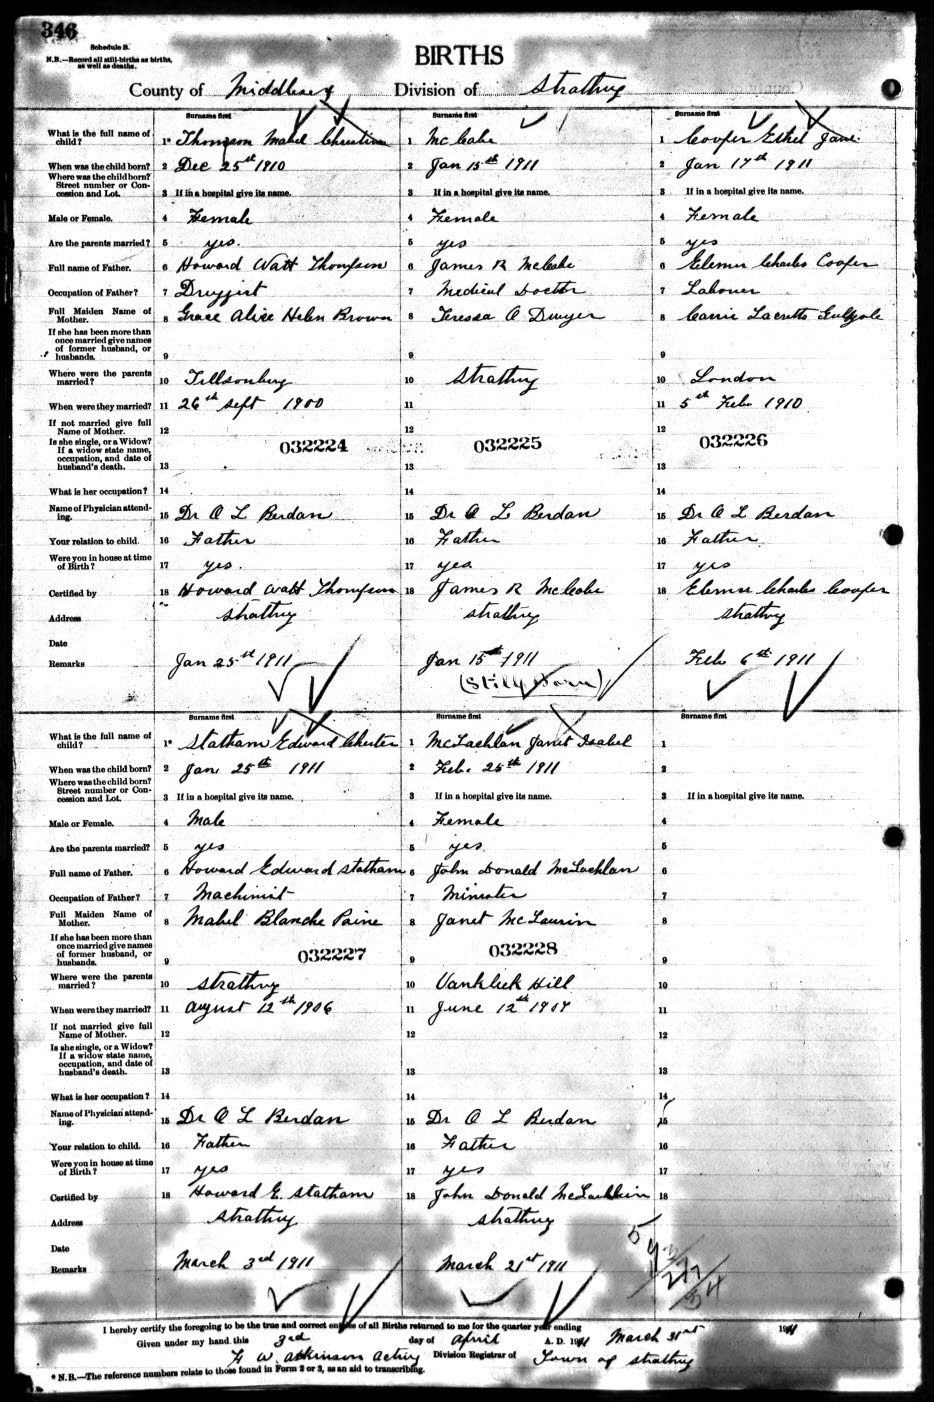 346
Schedule B.
N.B.—Record all still-births as births, as well as deaths.
BIRTHS
County of Middlesex Division of Strathroy
Surname first Surname first Surname first
What is the full name of child? 1* Thompson Mabel Christina 1 McCabe 1 Cooper Ethel Jane
When was the child born? 2 Dec 25th 1910 2 Jan 15th 1911 2 Jan 17th 1911
Where was the child born? Street number or Concession and Lot. 3 If in a hospital give its name. 3 If in a hospital give its name. 3 If in a hospital give its name.
Male or Female. 4 Female 4 Female 4 Female
Are the parents married? 5 yes. 5 yes 5 yes
Full name of Father. 6 Howard Watt Thompson 6 James R McCabe 6 Elemer Charles Cooper
Occupation of Father? 7 Druggist 7 Medical Doctor 7 Labourer
Full Maiden Name of Mother. 8 Grace Alice Helen Brown 8 Teressa A Dwyer 8 Carrie
If she has been more than once married give names of former husband, or husbands. 9 9 9
Where were the parents married? 10 Tillsonburg 10 Strathroy 10 London
When were they married? 11 26th Sept 1900 11 11 5th Feb 1910
If not married give full Name of Mother. 12 12 12
Is she single, or a Widow? If a widow state name, occupation, and date of husband's death. 13 032224 13 032225 13 032226
What is her occupation? 14 14 14
Name of Physician attending. 15 Dr A L Berdan 15 Dr A L Berdan 15 Dr A L Berdan
Your relation to child. 16 Father 16 Father 16 Father
Were you in house at time of Birth? 17 yes. 17 yes. 17 yes
Certified by 18 Howard Watt Thompson 18 James R McCabe 18 Elemer Charles Cooper
Address Strathroy Strathroy Strathroy
Date
Remarks Jan 25th 1911 Jan 15th 1911 Feb 6th 1911
(Still born)
Surname first Surname first Surname first
What is the full name of child? 1* Statham Edward Chester 1 McLachlan Janet Isabel 1
When was the child born? 2 Jan 25th 1911 2 Feb. 25th 1911 2
Where was the child born? Street number or Concession and Lot. 3 If in a hospital give its name. 3 If in a hospital give its name. 3 If in a hospital give its name.
Male or Female. 4 Male 4 Female 4
Are the parents married? 5 yes 5 yes. 5
Full name of Father. 6 Howard Edward Statham 6 John Donald McLachlan 6
Occupation of Father? 7 Machinist 7 Minister 7
Full Maiden Name of Mother. 8 Mabel Blanche Paine 8 Janet McLaurin 8
If she has been more than once married give names of former husband, or husbands. 9 032227 9 032228 9
Where were the parents married? 10 Strathroy 10 Vankleek Hill 10
When were they married? 11 August 12th 1906 11 June 12th 11
If not married give full Name of Mother. 12 12 12
Is she single, or a Widow? If a widow state name, occupation, and date of husband's death. 13 13 13
What is her occupation? 14 14 14
Name of Physician attending. 15 Dr A L Berdan 15 Dr A L Berdan 15
Your relation to child. 16 Father 16 Father 16
Were you in house at time of Birth? 17 yes 17 yes 17
Certified by 18 Howard E. Statham 18 John Donald McLachlin 18
Address Strathroy Strathroy
Date
Remarks March 3rd 1911 March 21st 1911
I hereby certify the foregoing to be the true and correct entries of all Births returned to me for the quarter year ending March 31st 1911
Given under my hand this 3rd day of April A. D. 1911
F. W. Atkinson Acting Division Registrar of Town of Strathroy
* N.B.—The reference numbers relate to those found in Form 2 or 3, as an aid to transcribing.